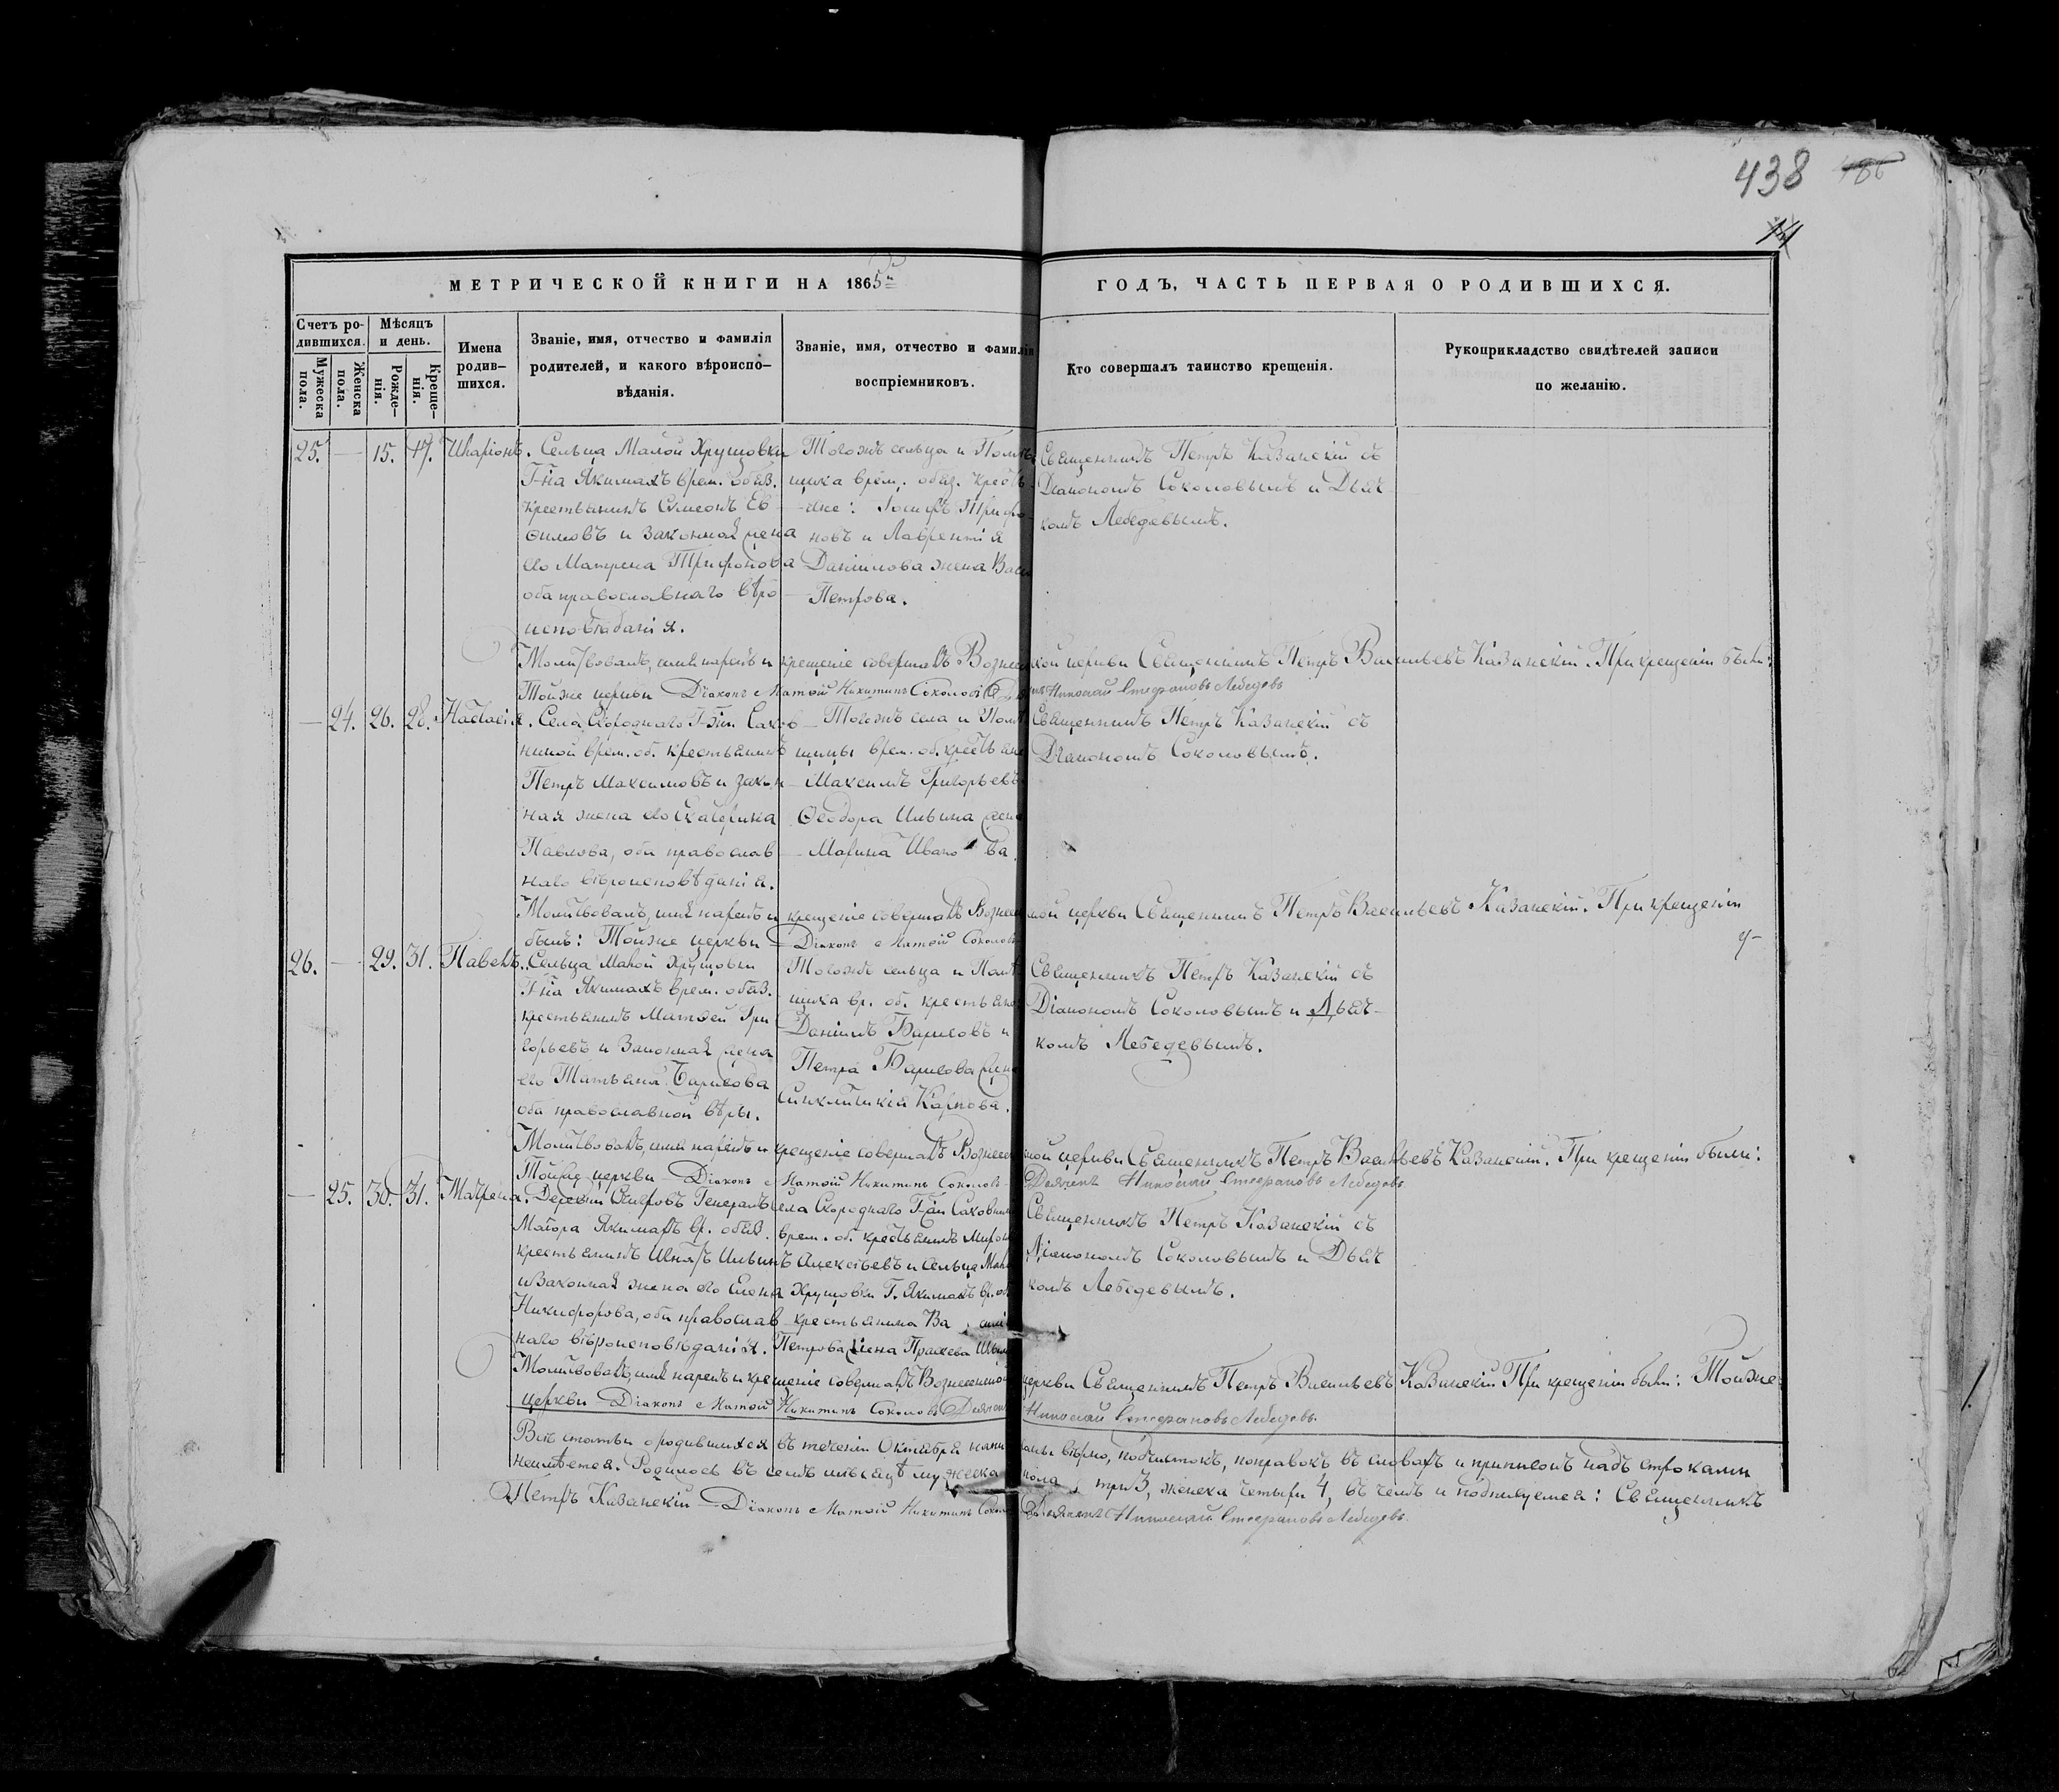 438 486
МЕТРИЧЕСКОЙ КНИГИ НА 1865й ГОДЪ, ЧАСТЬ ПЕРВАЯ О РОДИВШИХСЯ.
Счетъ ро-
дившихся.
Мужеска
пола.
Женска
пола.
Мѣсяцъ
и день.
Рожде-
нія.
Креще-
нія.
Имена
родив-
шихся.
Званіе, имя, отчество и фамилія
родителей, и какого вѣроиспо-
вѣданія.
Званіе, имя, отчество и фамилія
воспріемниковъ.
Кто совершалъ таинство крещенія.
Рукоприкладство свидѣтелей записи
по желанію.
25. — 15. 17. Иларіонъ.
Сельца Малой Хрущовки
Г-на Якимахъ врем. обяз.
крестьянинъ Симеонъ Ев-
ѳимовъ и законная жена
его Матрена Трифонова
оба православнаго вѣро
исповѣданія.
Тогожъ сельца и Помѣ
щика врем. обяз. крестья
не: Іосифъ Трифо
новъ и Лаврентія
Даніилова жена Васи
Петрова.
Священникъ Петръ Казанскій съ
Діакономъ Соколовымъ и Дьяч
комъ Лебедевымъ.
Молитвовалъ, имя нарекъ и крещеніе совершалъ Вознесенской церкви Священникъ Петръ Васильевъ Казанскій. При крещеніи были:
Тойже церкви Діаконъ Матѳій Никитинъ Соколовъ Николай Стефановъ Лебедевъ
— 24. 26. 28. Настасія.
Села Скороднаго Г-жи Сахов
ниной врем. об. крестьянинъ
Петръ Максимовъ и закон
ная жена его Екатерина
Павлова, оба православ
наго вѣроисповѣданія.
Тогожъ села и Помѣ
щицы врем. об. крестьяне
Максимъ Григорьевъ
Ѳеодора Ильина жена
Марина Иванова.
Священникъ Петръ Казанскій съ
Діакономъ Соколовымъ.
Молитвовалъ, имя нарекъ и крещеніе совершалъ Вознесенской церкви Священникъ Петръ Васильевъ Казанскій. При крещеніи
былъ: Тойже церкви Діаконъ Матѳій Соколовъ
26. — 29. 31. Павелъ.
Сельца Малой Хрущовки
Г-на Якимахъ врем. обяз.
крестьянинъ Матѳей Гри
горьевъ и Законная жена
его Татьяна Борисова
оба православной вѣры.
Тогожъ сельца и Помѣ
щика вр. об. крестьяне
Даніилъ Борисовъ и
Петра Борисова жена
Синклитикія Карпова.
Священникъ Петръ Казанскій съ
Діакономъ Соколовымъ и Дьяч-
комъ Лебедевымъ.
Молитвовалъ, имя нарекъ и крещеніе совершалъ Вознесенской церкви Священникъ Петръ Васильевъ Казанскій. При крещеніи были:
Тойже церкви Діаконъ Матѳій Никитинъ Соколовъ Дьячекъ Николай Стефановъ Лебедевъ
— 25. 30. 31. Матрена.
Деревни Генералъ
Маіора Якимахъ вр. обяз.
крестьянинъ Ильинъ
и Законная жена его Елена
Никифорова, оба православ
наго вѣроисповѣданія.
Села Скороднаго Г-жи Саховнин
врем. об. крестьянинъ Миронъ
Алексѣевъ и сельца Мал
Хрущовки Г. Якимахъ вр. об
крестьянина Ва силі
Петрова жена Праскева Ильин
Священникъ Петръ Казанскій съ
Діакономъ Соколовымъ и Дьяч
комъ Лебедевымъ.
Молитвовалъ, имя нарекъ и крещеніе совершалъ Вознесенской церкви Священникъ Петръ Васильевъ Казанскій При крещеніи были: Тойже
церкви Діаконъ Матѳій Никитинъ Соколовъ Дьячекъ Николай Стефановъ Лебедевъ
Всѣ статьи о родившихся въ теченіи Октября написаны вѣрно, подчистокъ, поправокъ въ словахъ и приписокъ надъ строками
неимѣется. Родилось въ семъ мѣсяцѣ мужеска пола три 3, женска четыри 4, въ чемъ и подписуемся: Священникъ
Петръ Казанскій Діаконъ Матѳій Никитинъ Соколовъ Дьячекъ Николай Стефановъ Лебедевъ.